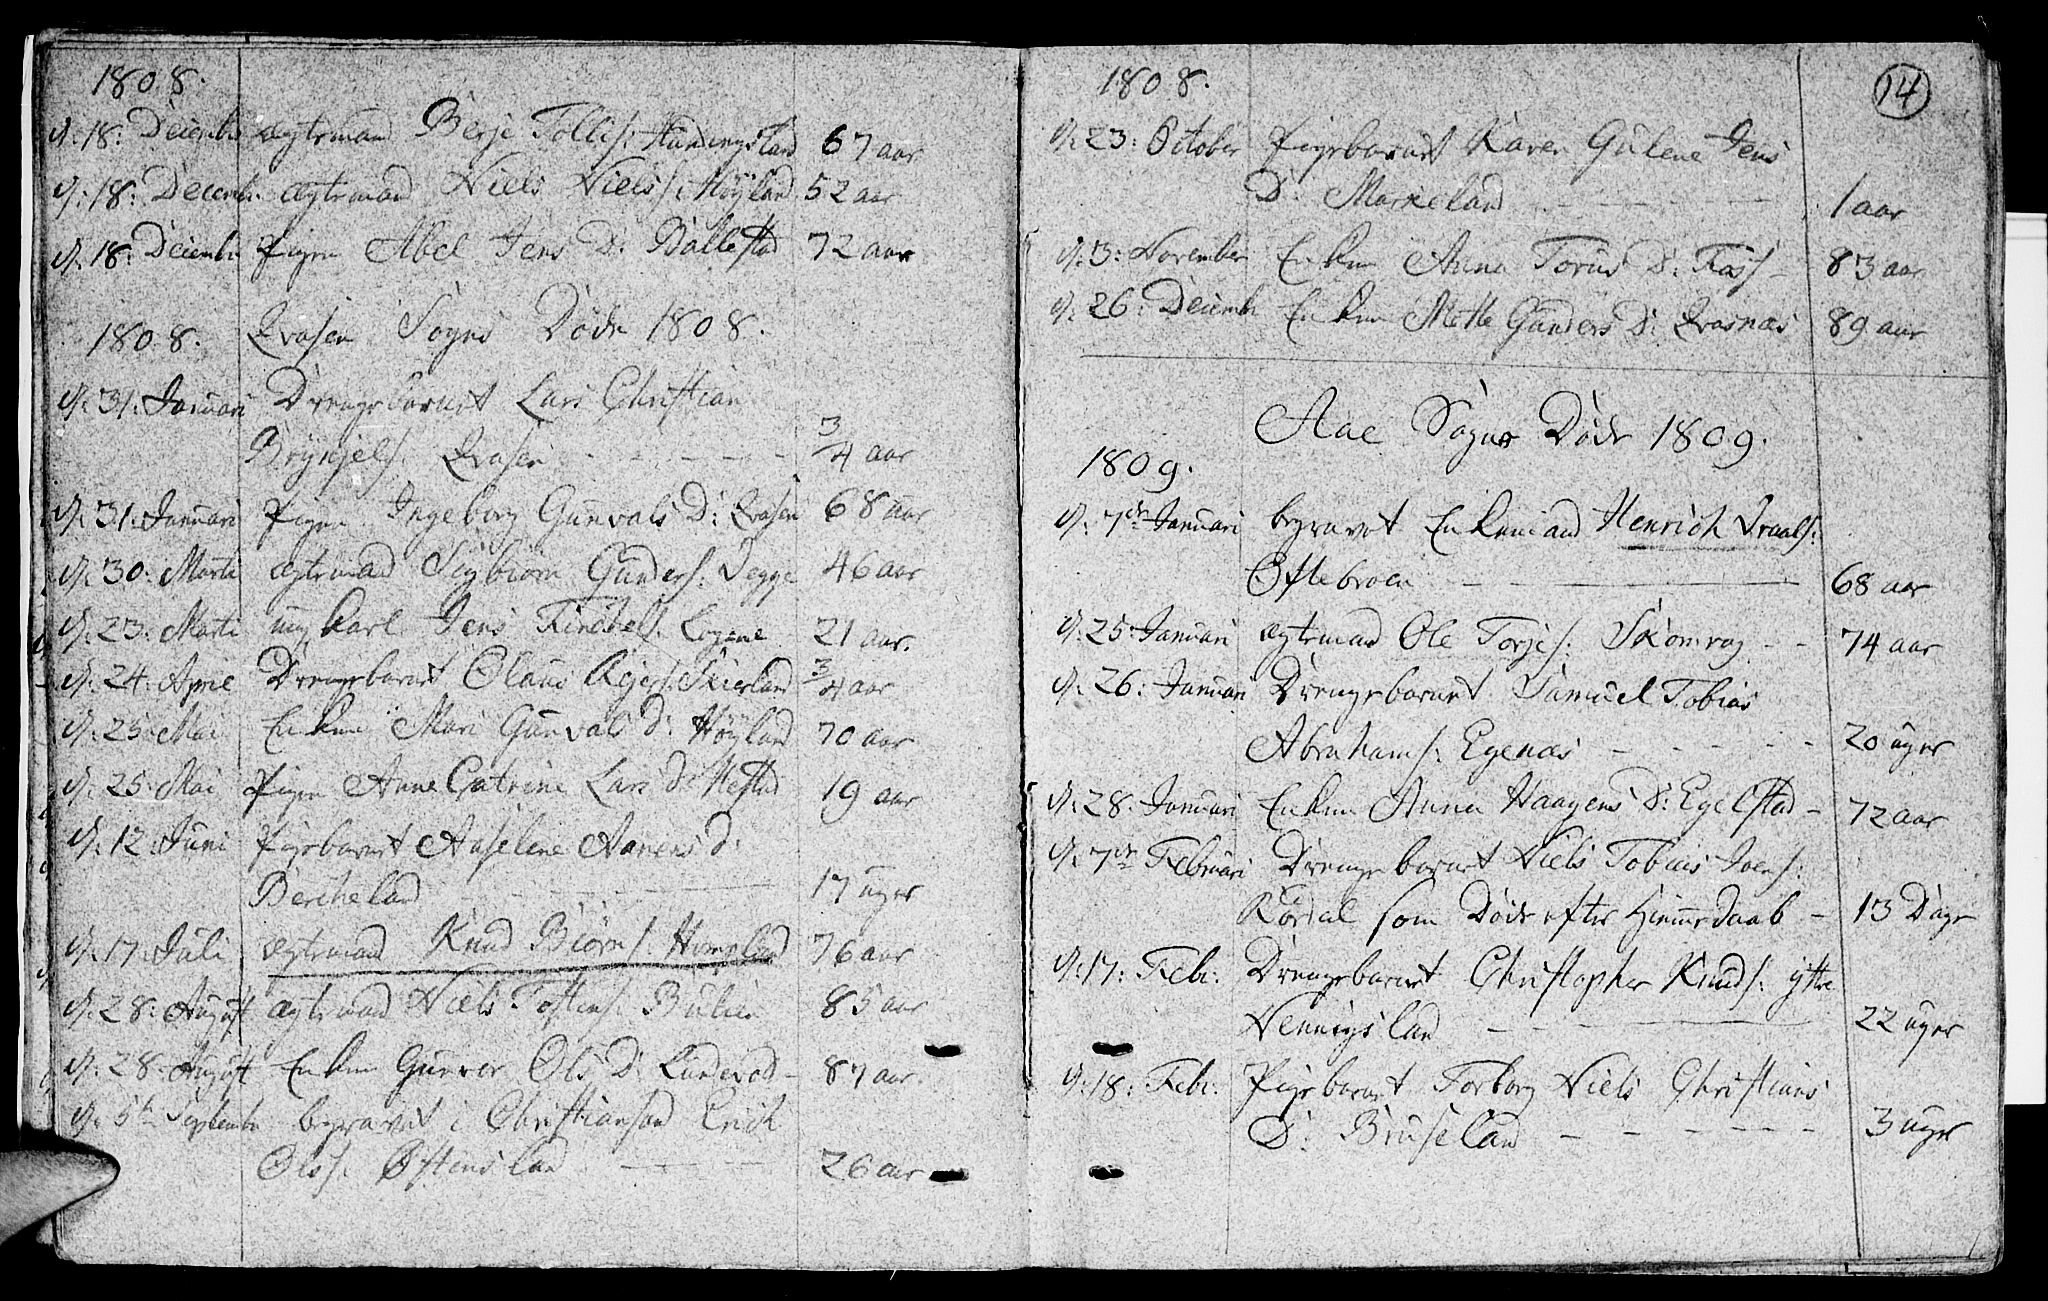 1808.
d: 18: Decembr ægtemand Berje Tollis: Hundingsland 67 aar
d: 18: Decembr. ægtemand Niels Niels: Höyland 52 aar
d: 18: Decembr Pigen Abel Jens D: Ballestad 72 aar
1808. Qvasen Sogns Döde 1808.
d: 31: Januari Drengebarnet Lars Christian
Brynjels: Qvasen - - - - - 3/4 aar
d: 31: Januari Pigen Ingeborg Gunvals D: Qvasen 68 aar
d: 30: Marti ægtemand Sigbiorn Gunders: Degge 46 aar
d: 23: Marti ung karl Jens Lögene 21 aar.
d: 24: April Drengebarnet Olaus Skierland 3/4 aar
d: 25: Mai Enken Mari Gunvals D: Höyland 70 aar
d: 25: Mai Pigen Anne Catrine Lars D: 19 aar
d: 12: Juni Pigebarnet Anselene Aanens D:
Bercheland - - - - 17 uger
d: 17: Juli ægtemand Knud Biörns: 76 aar
d: 28: August ægtemand Niels Tostens: 85 aar
d: 28: August Enken Gunvor Ols D: Lundevod - 87 aar.
d: 5te Septembr begravet i Christiansand Erich
Ols: Östensland - - - 26 aar
14
1808.
d: 23: October Pigebarnet Karen Gulene Jens
D: Markeland - - - - - 1 aar
d: 3: November Enken Anna Torius D: Foss - 83 aar
d: 26: Decembr Enken Mette Gunders D: Qvasnæs 89 aar
Aae Sogns Döde 1809.
1809.
d: 7de Januari begravet Enkemand Henrich Traals:
Oftebroen - - - 68 aar
d: 25 Januari ægtemand Ole Torjes: Skomrag - - 74 aar
d: 26: Januari Drengebarnet Samuel Tobias
Abrahams: Egenæs - - - - - 20 uger
d: 28: Januari Enken Anna Haagens D: Egelstad - 72 aar
d: 7de Februari Drengebarnet Niels Tobias Joens:
Rördal som Döde efter Hiemmedaab - 13 Dage
d: 17: Feb: Drengebarnet Christopher Knuds: ytre
Hennigsland - - - 22 uger
d: 18: Feb: Pigebarnet Torborg Niels Christians
D: Bruseland - - - - - 3 uger